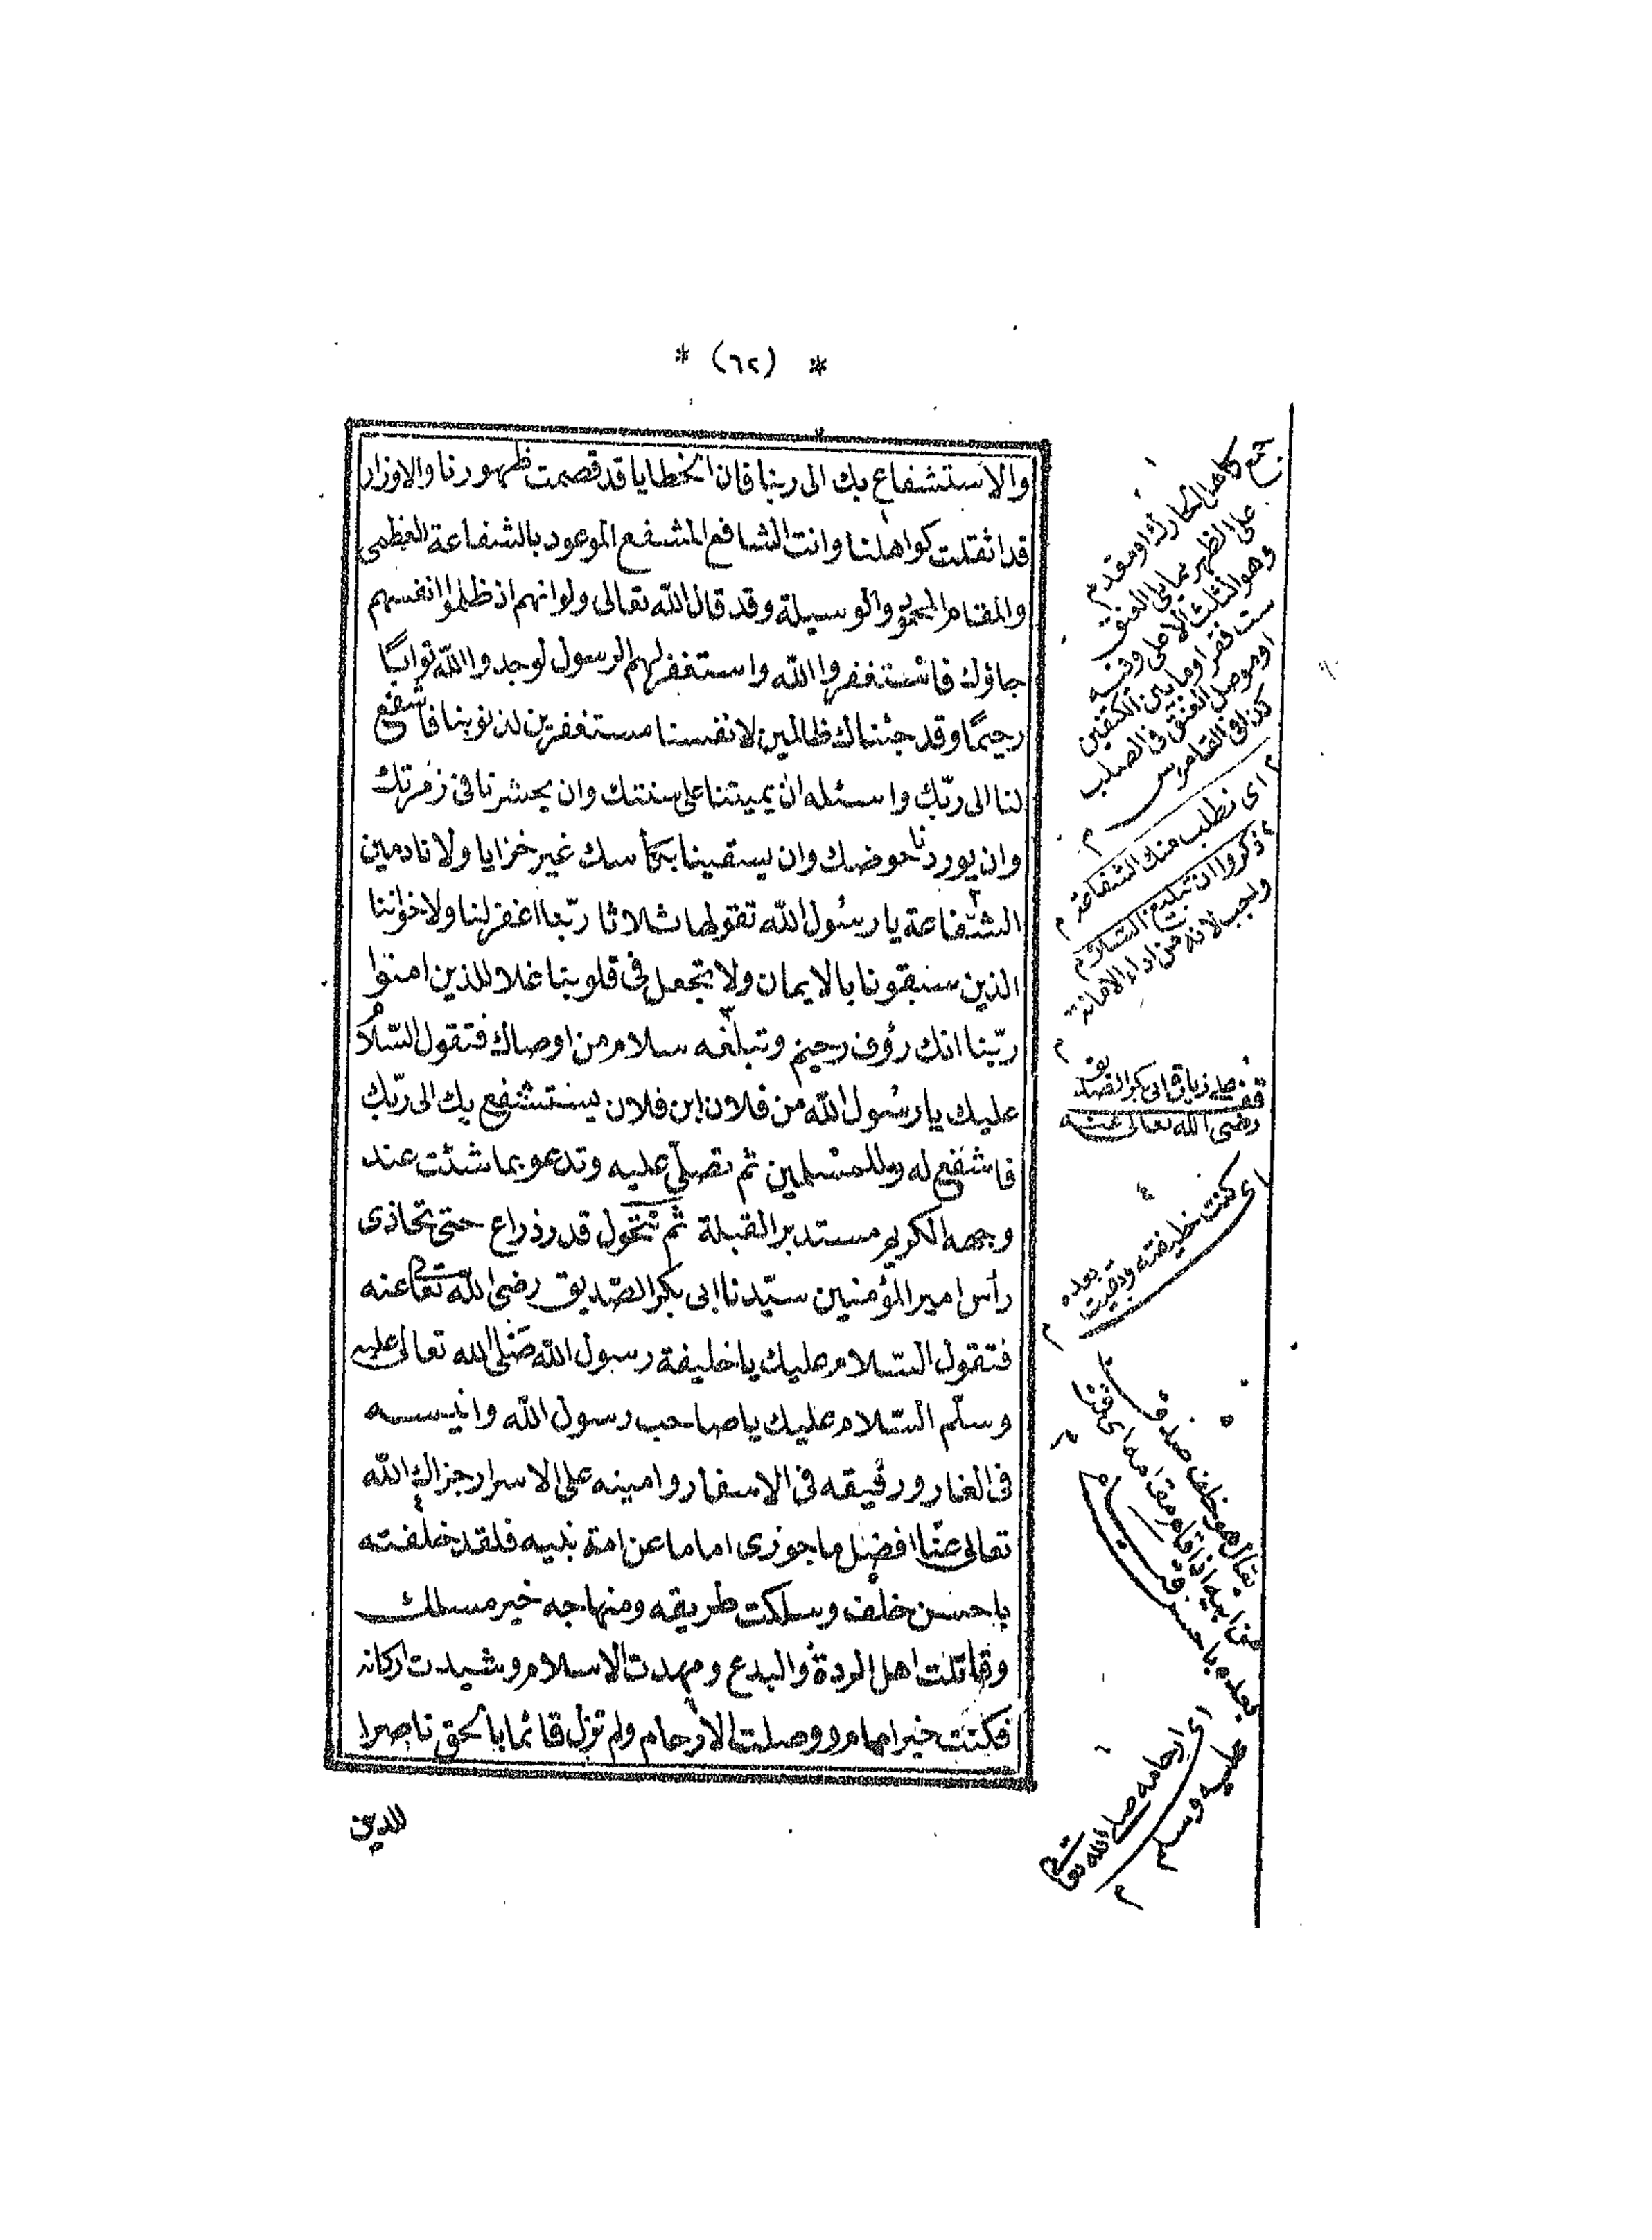 * (٦٢) *
والاستشفاع بك الى ربنا فان الخطايا قد قصمت ظهورنا والاوزار
قد اثقلت كواهلنا وانت الشافع المشفع الموعود بالشفاعة العظمى
والمقام المحمود والوسيلة وقد قال الله تعالى ولو انهم اذ ظلموا انفسهم
جاؤك فاستغفروا الله واستغفر لهم الرسول لوجدوا الله توابا
رحيما وقد جئناك ظالمين لانفسنا مستغفرين لذنوبنا فاشفع
لنا الى ربّك واسئله ان يميتنا على سنتك وان يحشرنا فى زمرتك
وان يوردنا حوضك وان يسقينا بكأسك غير خزايا ولا نادمين
الشفاعة يا رسول الله تقولها ثلاثا ربّنا اغفر لنا ولاخواننا
الذين سبقونا بالايمان ولا تجعل فى قلوبنا غلا للذين امنوا
ربّنا انك رؤف رحيم وتبلغه سلام من اوصاك فتقول السّلام
عليك يا رسول الله من فلان ابن فلان يستشفع بك الى ربّك
فاشفع له وللمسلمين ثم تصلّى عليه وتدعو بما شئت عند
وجهه الكريم مستدبر القبلة ثم تتحول قدر ذراع حتى تحاذى
رأس امير المؤمنين سيّدنا ابى بكر الصّديق رضى الله تعا عنه
فتقول السّلام عليك يا خليفة رسول الله صلى الله تعالى عليه
وسلّم السّلام عليك يا صاحب رسول الله وانيسه
فى الغار ورفيقه فى الاسفار وامينه على الاسرار جزاك الله
تعالى عنّا افضل ما جوزى اماما عن امة نبيه فلقد خلفته
باحسن خلف وسلكت طريقه ومنهاجه خير مسلك
وقاتلت اهل الردة والبدع ومهدت الاسلام وشيدت اركانه
فكنت خير امام ووصلت الارحام ولم تزل قائما بالحق ناصرا
للدين
جمع كاهل الحارك او مقدم
على الظهر مما يلى العنق
وهو الثلث الاعلى وفيه
ست فقر او ما بين الكتفين
او موصل العنق فى الصلب
كذا فى القاموس
اى نطلب منك الشفاعة
ذكروا ان تبليغ السلام
واجب لانه من اداء الامانة
قف على زيارة ابى بكر الصديق
رضى الله تعالى عنه
اى كنت خليفته وبقيت
بعده
يقال هو خلف صدق
من ابيه اذا قام مقامه
بعده باحسن
اى ارحامه صلى الله تعالى
عليه وسلم